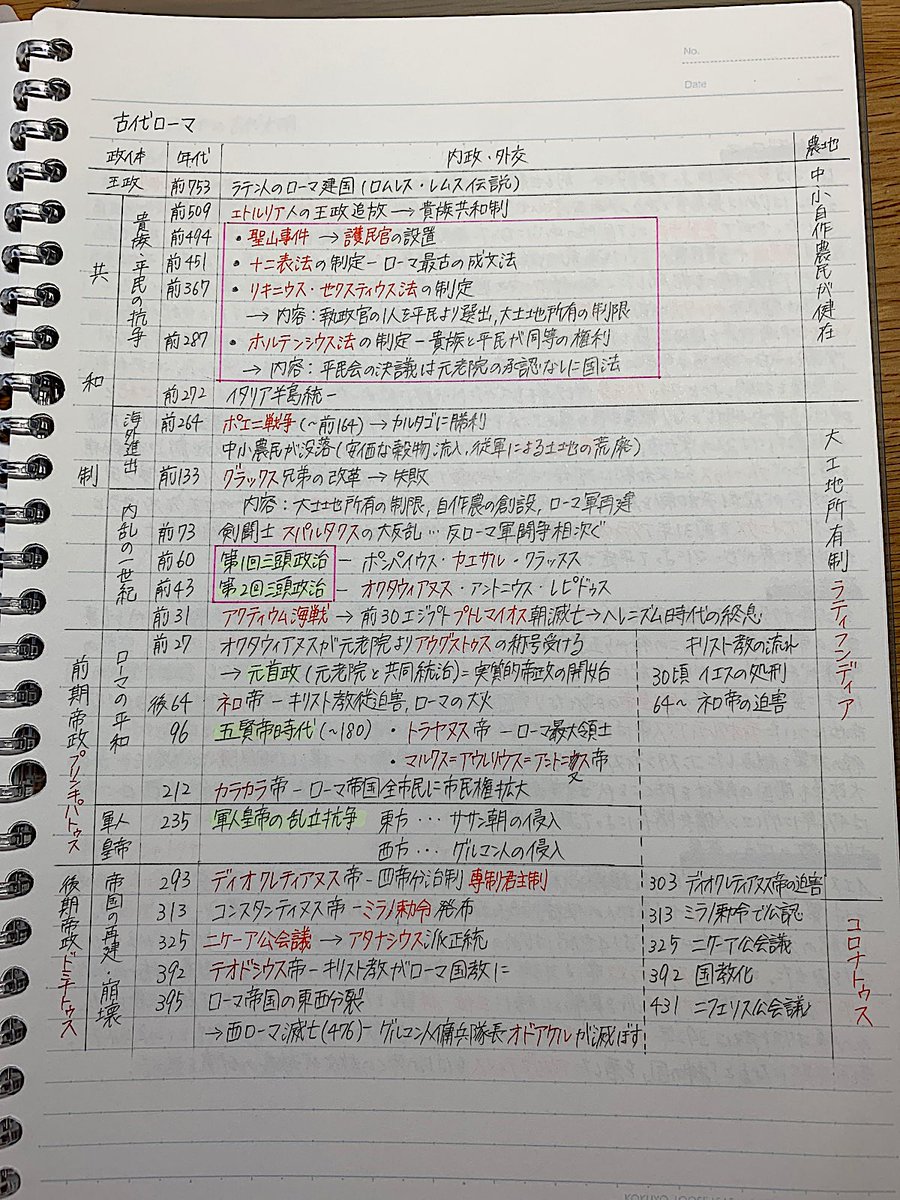 No.
Date
古代ローマ
政体 年代 内政・外交 農地
王政 前753 ラテン人のローマ建国(ロムルス・レムス伝説)
中小自作農民が健在
共和制
貴族・平民の抗争
前509 エトルリア人の王政追放→貴族共和制
前494 ・聖山事件→護民官の設置
前451 ・十二表法の制定ーローマ最古の成文法
前367 ・リキニウス・セクスティウス法の制定
→内容:執政官の1人を平民より選出,大土地所有の制限
前287 ・ホルテンシウス法の制定ー貴族と平民が同等の権利
→内容:平民会の決議は元老院の承認なしに国法
前272 イタリア半島統一
海外進出
前264 ポエニ戦争(~前164)→カルタゴに勝利
中小農民が没落(安価な穀物流入,従軍による土地の荒廃)
大土地所有制 ラティフンディア
前133 グラックス兄弟の改革→失敗
内容:大土地所有の制限,自作農の創設,ローマ軍再建
内乱の一世紀
前73 剣闘士スパルタクスの大反乱…反ローマ軍闘争相次ぐ
前60 第1回三頭政治ーポンペイウス・カエサル・クラッスス
前43 第2回三頭政治ーオクタウィアヌス・アントニウス・レピドゥス
前31 アクティウム海戦→前30エジプトプトレマイオス朝滅亡→ヘレニズム時代の終息
前期帝政 プリンキパトゥス
ローマの平和
前27 オクタウィアヌスが元老院よりアウグストゥスの称号受ける
→元首政(元老院と共同統治)=実質的帝政の開始
後64 ネロ帝ーキリスト教徒迫害,ローマの大火
96 五賢帝時代(~180)・トラヤヌス帝ーローマ最大領土
・マルクス=アウレリウス=アントニヌス帝
212 カラカラ帝ーローマ帝国全市民に市民権拡大
軍人皇帝
235 軍人皇帝の乱立抗争 東方…ササン朝の侵入
西方…ゲルマン人の侵入
後期帝政 ドミナトゥス
帝国の再建・崩壊
293 ディオクレティアヌス帝ー四帝分治制 専制君主制
313 コンスタンティヌス帝ーミラノ勅令発布
325 ニケーア公会議→アタナシウス派正統
392 テオドシウス帝ーキリスト教がローマ国教に
395 ローマ帝国の東西分裂
→西ローマ滅亡(476)ーゲルマン人傭兵隊長オドアケルが滅ぼす
キリスト教の流れ
30頃 イエスの処刑
64~ ネロ帝の迫害
303 ディオクレティアヌス帝の迫害
313 ミラノ勅令で公認
325 ニケーア公会議
392 国教化
431 ニフェリス公会議
コロナトゥス